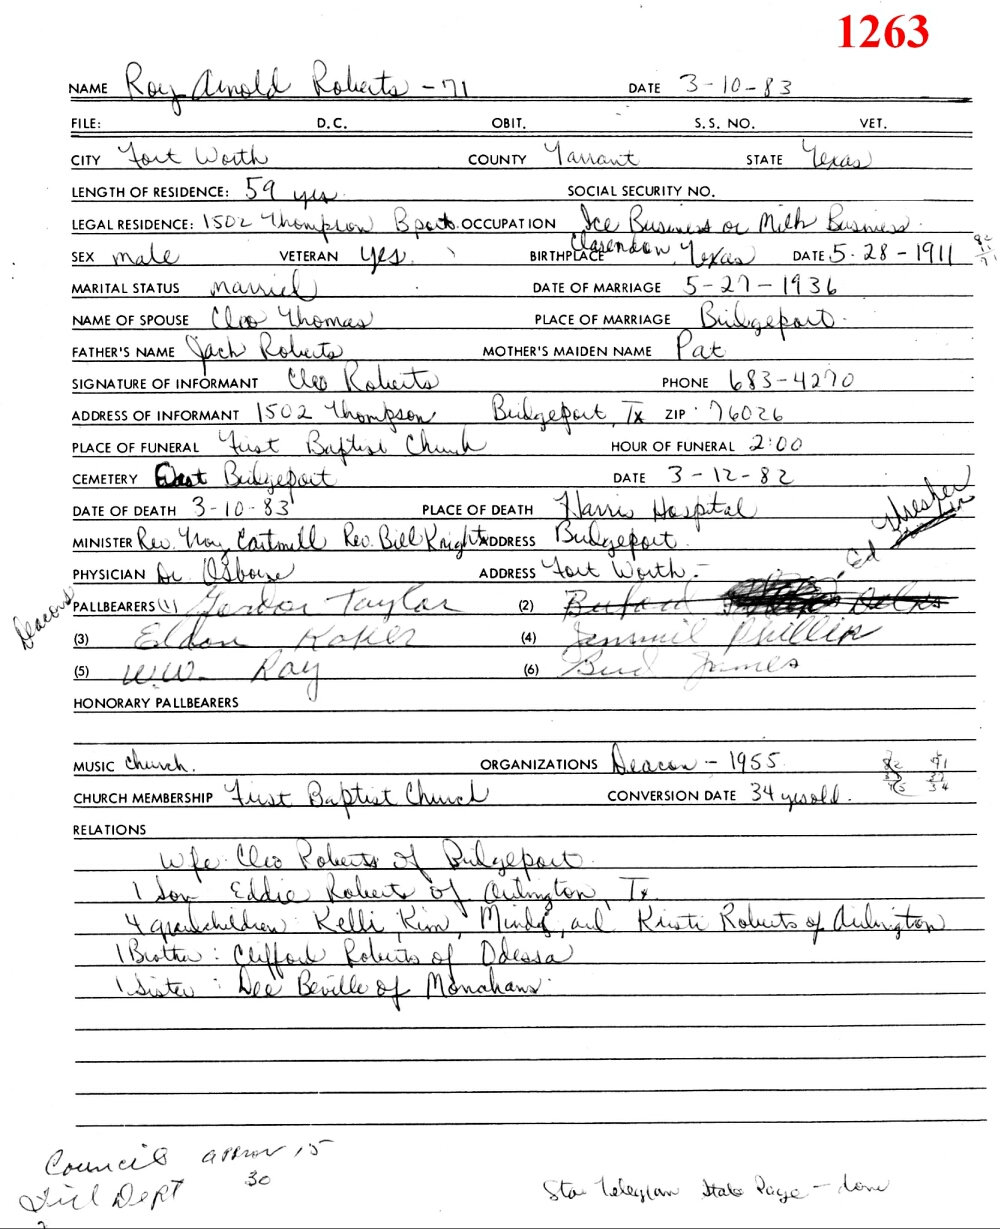 1263
NAME Roy Arnold Roberts - 71 DATE 3-10-83
FILE: D.C. OBIT. S.S. NO. VET.
CITY Fort Worth COUNTY Tarrant STATE Texas
LENGTH OF RESIDENCE: 59 yrs. SOCIAL SECURITY NO.
LEGAL RESIDENCE: 1502 Thompson Bport. OCCUPATION Ice Business or Milk Business.
SEX male VETERAN yes. BIRTHPLACE Clarendon, Texas DATE 5-28-1911
MARITAL STATUS married DATE OF MARRIAGE 5-27-1936
NAME OF SPOUSE Cleo Thomas PLACE OF MARRIAGE Bridgeport.
FATHER'S NAME Jack Roberts MOTHER'S MAIDEN NAME Pat
SIGNATURE OF INFORMANT Cleo Roberts PHONE 683-4270
ADDRESS OF INFORMANT 1502 Thompson Bridgeport, Tx ZIP 76026
PLACE OF FUNERAL First Baptist Church HOUR OF FUNERAL 2:00
CEMETERY East Bridgeport DATE 3-12-82
DATE OF DEATH 3-10-83 PLACE OF DEATH Harris Hospital
MINISTER Rev. Cartmill Rev. Bill Knight ADDRESS Bridgeport.
PHYSICIAN Dr. ADDRESS Fort Worth.
Deacons PALLBEARERS (1) Gordon Taylor (2) Buford Ed
(3) Eldon (4) Phillip
(5) W.W. Ray (6) Bud James
HONORARY PALLBEARERS
MUSIC church. ORGANIZATIONS Deacon - 1955
CHURCH MEMBERSHIP First Baptist Church CONVERSION DATE 34 yrs old.
RELATIONS
wife: Cleo Roberts of Bridgeport.
1 Son: Eddie Roberts of Arlington, Tx.
4 grandchildren: Kelli, Kim, Mindy, and Kristi Roberts of Arlington
1 Brother: Clifford Roberts of Odessa
1 Sister: Dee Beville of Monahans.
Council approx 15
Fire Dept 30
Star Telegram State Page - done